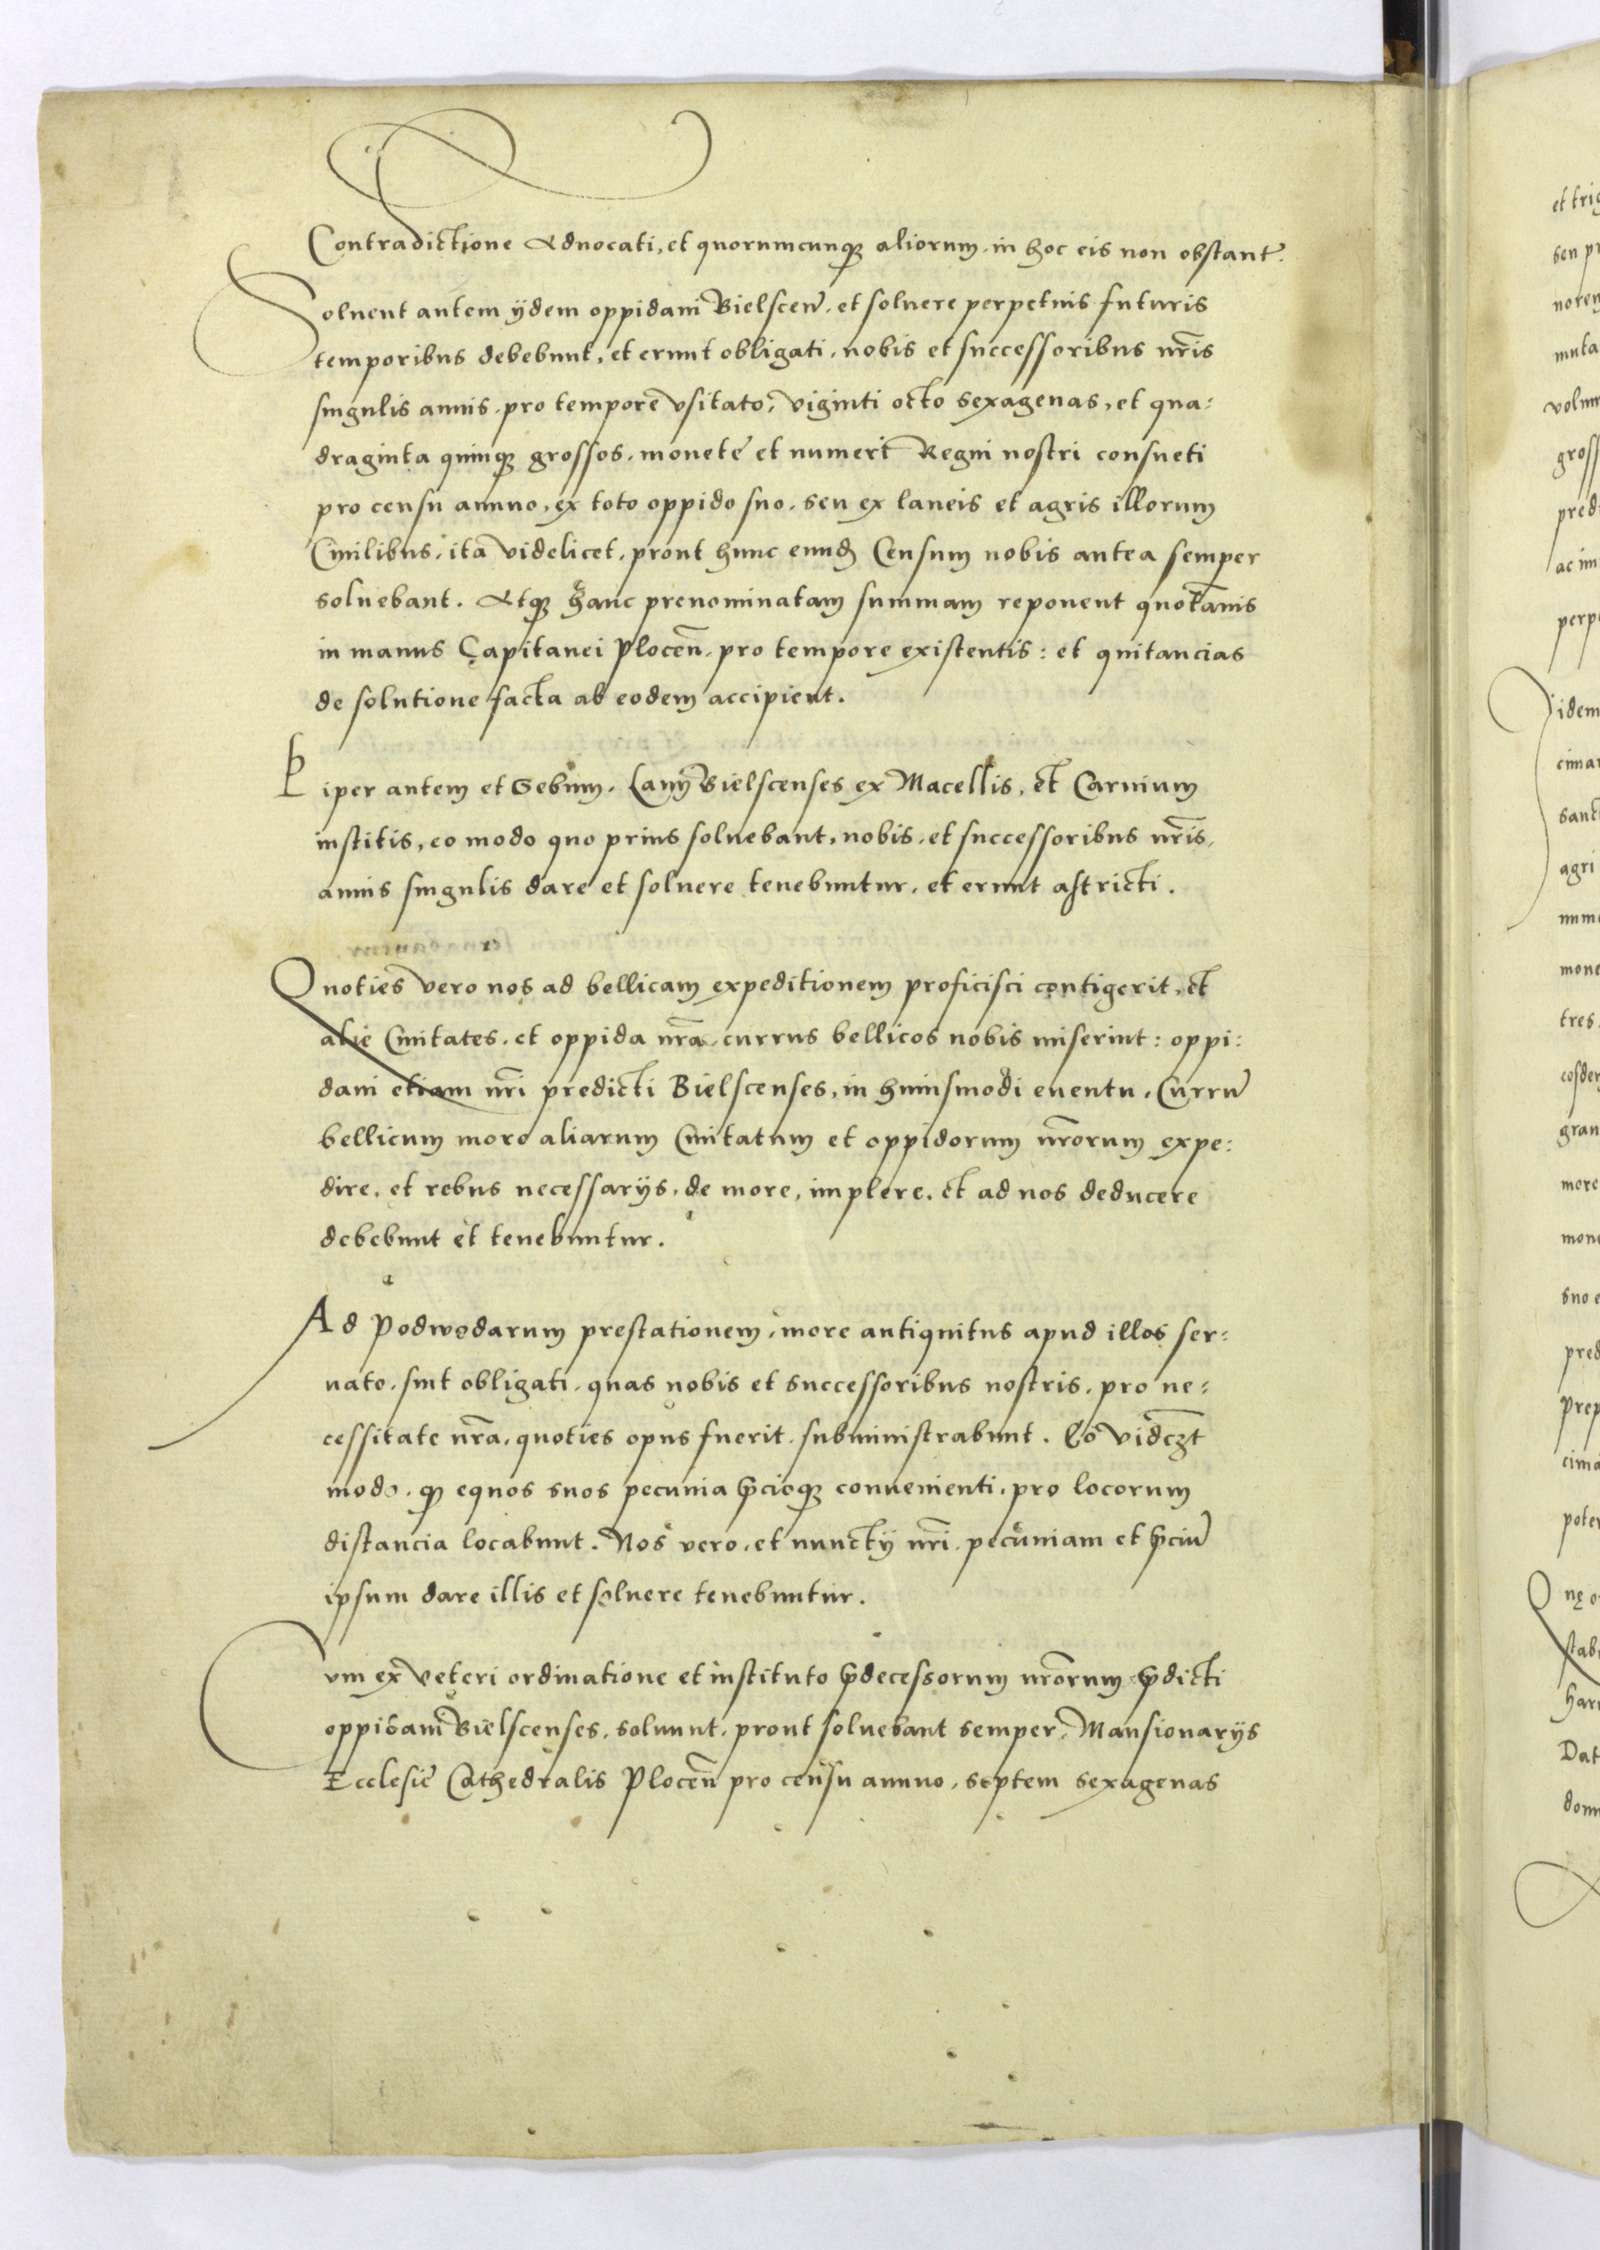 Contradictione Aduocati, et quorumcunqꝫ aliorum, in hoc eis non obstantē.
Soluent autem ijdem oppidani Bielsceñ. et soluere perpetuis futuris
temporibus debebunt, et erunt obligati, nobis et successoribus nr̃is
singulis annis, pro tempore vsitato, viginti octo sexagenas, et qua-
draginta quinqꝫ grossos, monete et numeri Regni nostri consueti
pro censu annuo, ex toto oppido suo, seu ex laneis et agris illorum
Ciuilibus, ita videlicet, prout hunc eund̃ Censum nobis antea semper
soluebant. Atqꝫ hanc prenominatam summam reponent quotannis
in manus Capitanei Ploceñ. pro tempore existentis: et quitancias
de solutione facta ab eodem accipient.
Piper autem et Sebum, Lanij Bielscenses ex Macellis, et Carnium
institis, eo modo quo prius soluebant, nobis, et successoribus nr̃is,
annis singulis dare et soluere tenebuntur, et erunt astricti.
Quoties vero nos ad bellicam expeditionem proficisci contigerit, et
alie Ciuitates, et oppida nr̃a, currus bellicos nobis miserint: oppi:
dani etiam nr̃i predicti Bielscenses, in huiusmodi euentu, Currũ
bellicum more aliarum Ciuitatum et oppidorum nr̃orum expe:
dire, et rebus necessarijs, de more, implere, et ad nos deducere
debebunt et tenebuntur.
Ad Podwodarum prestationem, more antiquitus apud illos ser-
uato, sint obligati, quas nobis et successoribus nostris, pro ne-
cessitate nr̃a, quoties opus fuerit, subministrabunt. Eo vidczt
modo, qꝫ equos suos pecunia p̃cioqꝫ conuenienti, pro locorum
distancia locabunt. Nos vero, et nunctij nr̃i, pecuniam et p̃ciũ
ipsum dare illis et soluere tenebuntur.
Cum ex veteri ordinatione et instituto p̃decessorum nr̃orum p̃dicti
oppidani Bielscenses, soluunt, prout soluebant semper, Mansionarijs
Ecclesie Cathedralis Ploceñ pro censu annuo, septem sexagenas